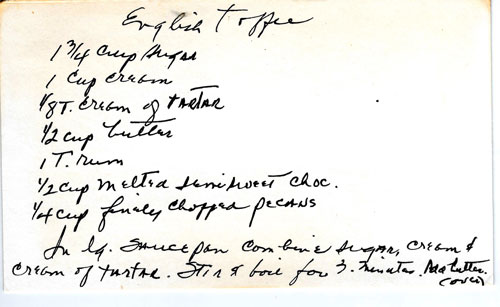 English Toffee
1 3/4 cup sugar
1 cup cream
1/8 T. cream of tartar
1/2 cup butter
1 T. rum
1/2 cup melted semisweet choc.
1/4 cup finely chopped pecans
In lg. saucepan combine sugar, cream &
cream of tartar. Stir & boil for 3. minutes. Add butter.
(over)